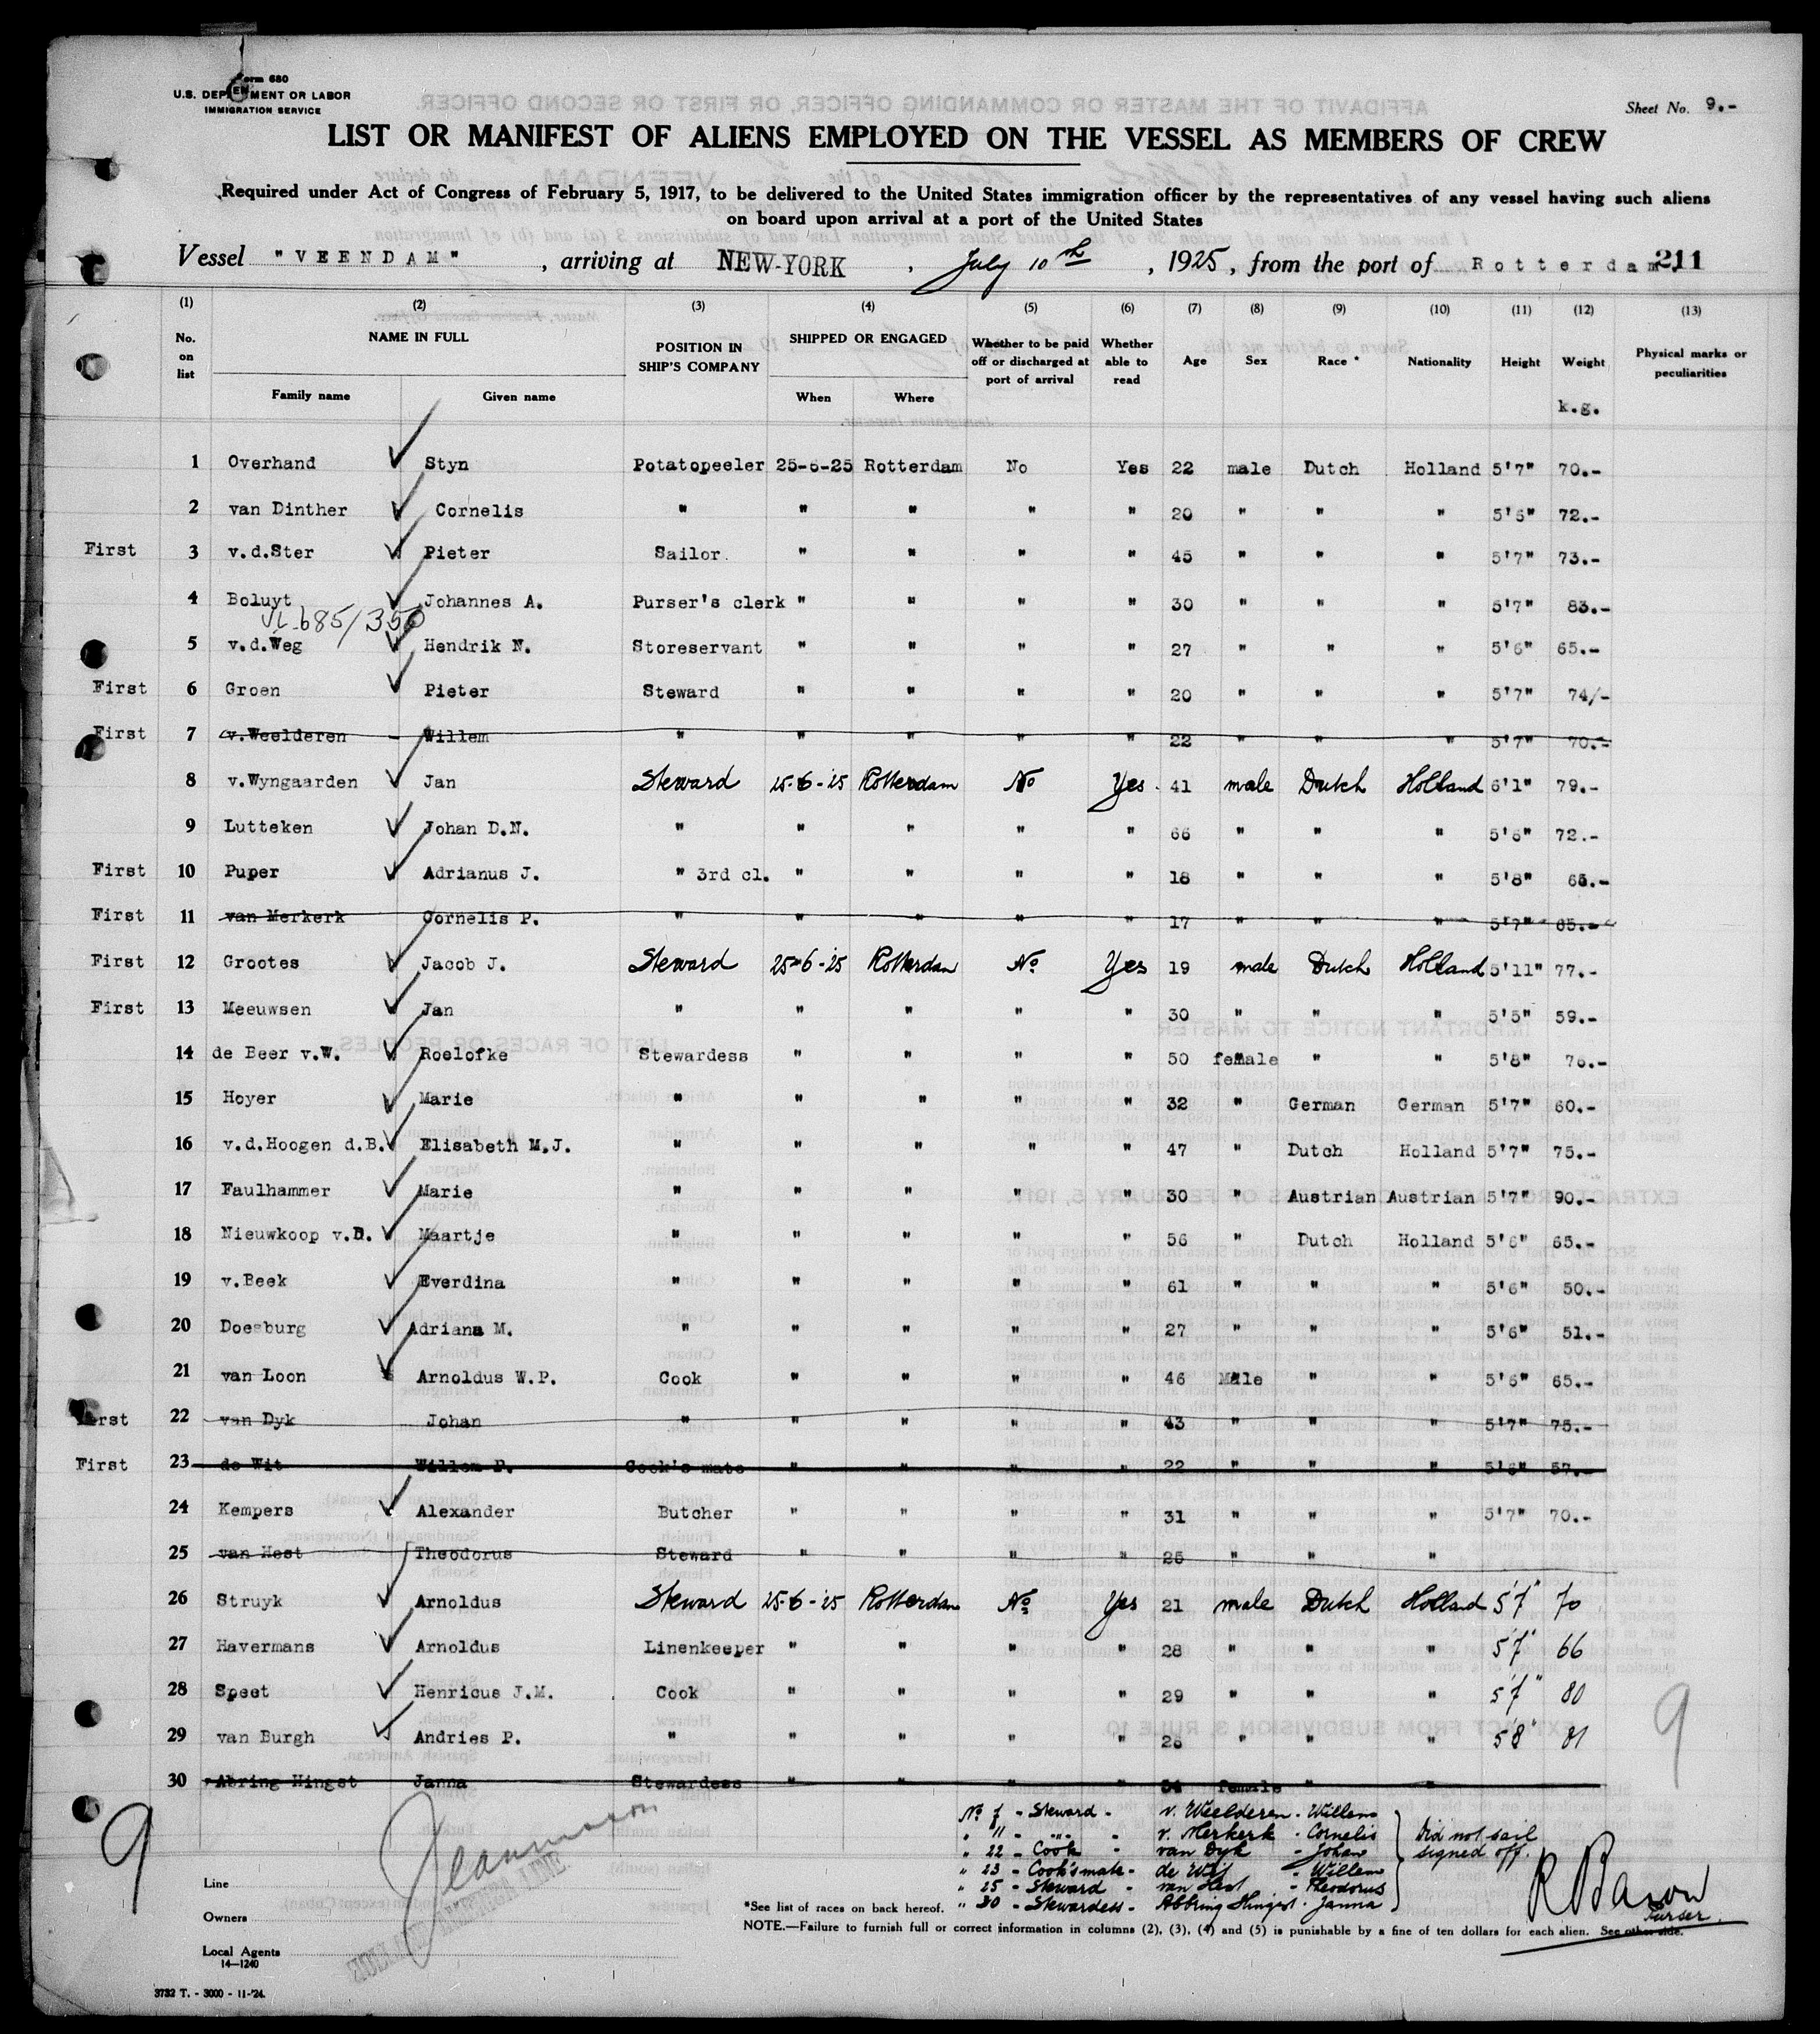 Form 680
U.S. DEPARTMENT OR LABOR
IMMIGRATION SERVICE
Sheet No. 9.-
LIST OR MANIFEST OF ALIENS EMPLOYED ON THE VESSEL AS MEMBERS OF CREW
Required under Act of Congress of February 5, 1917, to be delivered to the United States immigration officer by the representatives of any vessel having such aliens
on board upon arrival at a port of the United States
Vessel "VEENDAM", arriving at NEW-YORK, July 10th, 1925, from the port of Rotterdam. 211
(1) (2) (3) (4) (5) (6) (7) (8) (9) (10) (11) (12) (13)
No. on list NAME IN FULL Family name Given name POSITION IN SHIP'S COMPANY SHIPPED OR ENGAGED When Where Whether to be paid off or discharged at port of arrival Whether able to read Age Sex Race * Nationality Height Weight k.g. Physical marks or peculiarities
1 Overhand Styn Potatopeeler 25-6-25 Rotterdam No Yes 22 male Dutch Holland 5'7" 70.-
2 van Dinther Cornelis " " " " " 20 " " " 5'6" 72.-
First 3 v.d.Ster Pieter Sailor. " " " " 45 " " " 5'7" 73.-
4 Boluyt Johannes A. Purser's clerk " " " " 30 " " " 5'7" 83.-
685/350
5 v.d.Weg Hendrik N. Storeservant " " " " 27 " " " 5'6" 65.-
First 6 Groen Pieter Steward " " " " 20 " " " 5'7" 74/-
First 7 v.Weelderen Willem " " " " " 22 " " " 5'7" 70.-
8 v.Wyngaarden Jan Steward 25-6-25 Rotterdam No Yes 41 male Dutch Holland 6'1" 79.-
9 Lutteken Johan D.N. " " " " " 66 " " " 5'6" 72.-
First 10 Puper Adrianus J. " 3rd cl. " " " " 18 " " " 5'8" 65.-
First 11 van Merkerk Cornelis P. " " " " " 17 " " " 5'7" 65.-
First 12 Grootes Jacob J. Steward 25-6-25 Rotterdam No Yes 19 male Dutch Holland 5'11" 77.-
First 13 Meeuwsen Jan " " " " " 30 " " " 5'5" 59.-
14 de Beer v.W. Roelofke Stewardess " " " " 50 female " " 5'8" 76.-
15 Hoyer Marie " " " " " 32 " German German 5'7" 60.-
16 v.d.Hoogen d.B. Elisabeth M.J. " " " " " 47 " Dutch Holland 5'7" 75.-
17 Faulhammer Marie " " " " " 30 " Austrian Austrian 5'7" 90.-
18 Nieuwkoop v.D. Maartje " " " " " 56 " Dutch Holland 5'6" 65.-
19 v.Beek Everdina " " " " " 61 " " " 5'6" 50.-
20 Doesburg Adriana M. " " " " " 27 " " " 5'6" 51.-
21 van Loon Arnoldus W.P. Cook " " " " 46 Male " " 5'6" 65.-
First 22 van Dyk Johan " " " " " 43 " " " 5'7" 75.-
First 23 de Wit Willem P. Cook's mate " " " " 22 " " " 5'6" 57.-
24 Kempers Alexander Butcher " " " " 31 " " " 5'7" 70.-
25 van Hest Theodorus Steward " " " " 25 " " "
26 Struyk Arnoldus Steward 25-6-25 Rotterdam No Yes 21 male Dutch Holland 5'7" 70
27 Havermans Arnoldus Linenkeeper " " " " 28 " " " 5'7" 66
28 Speet Henricus J.M. Cook " " " " 29 " " " 5'7" 80
29 van Burgh Andries P. " " " " " 28 " " " 5'8" 81
30 Abring Hingst Janna Stewardess " " " " 34 female " "
9
9
No 7 - Steward - v. Weelderen - Willem
" 11 - " - v. Merkerk - Cornelis
" 22 - Cook - van Dyk - Johan
" 23 - Cook's mate - de Wit - Willem
" 25 - Steward - van Hest - Theodorus
" 30 - Stewardess - Abbring Hingst - Janna
Did not sail
signed off.
R Baron
Purser.
Line
Owners
Local Agents
14—1240
HOLLAND AMERICA LINE
*See list of races on back hereof.
NOTE.—Failure to furnish full or correct information in columns (2), (3), (4) and (5) is punishable by a fine of ten dollars for each alien. See other side.
3732 T. - 3000 - 11-'24.